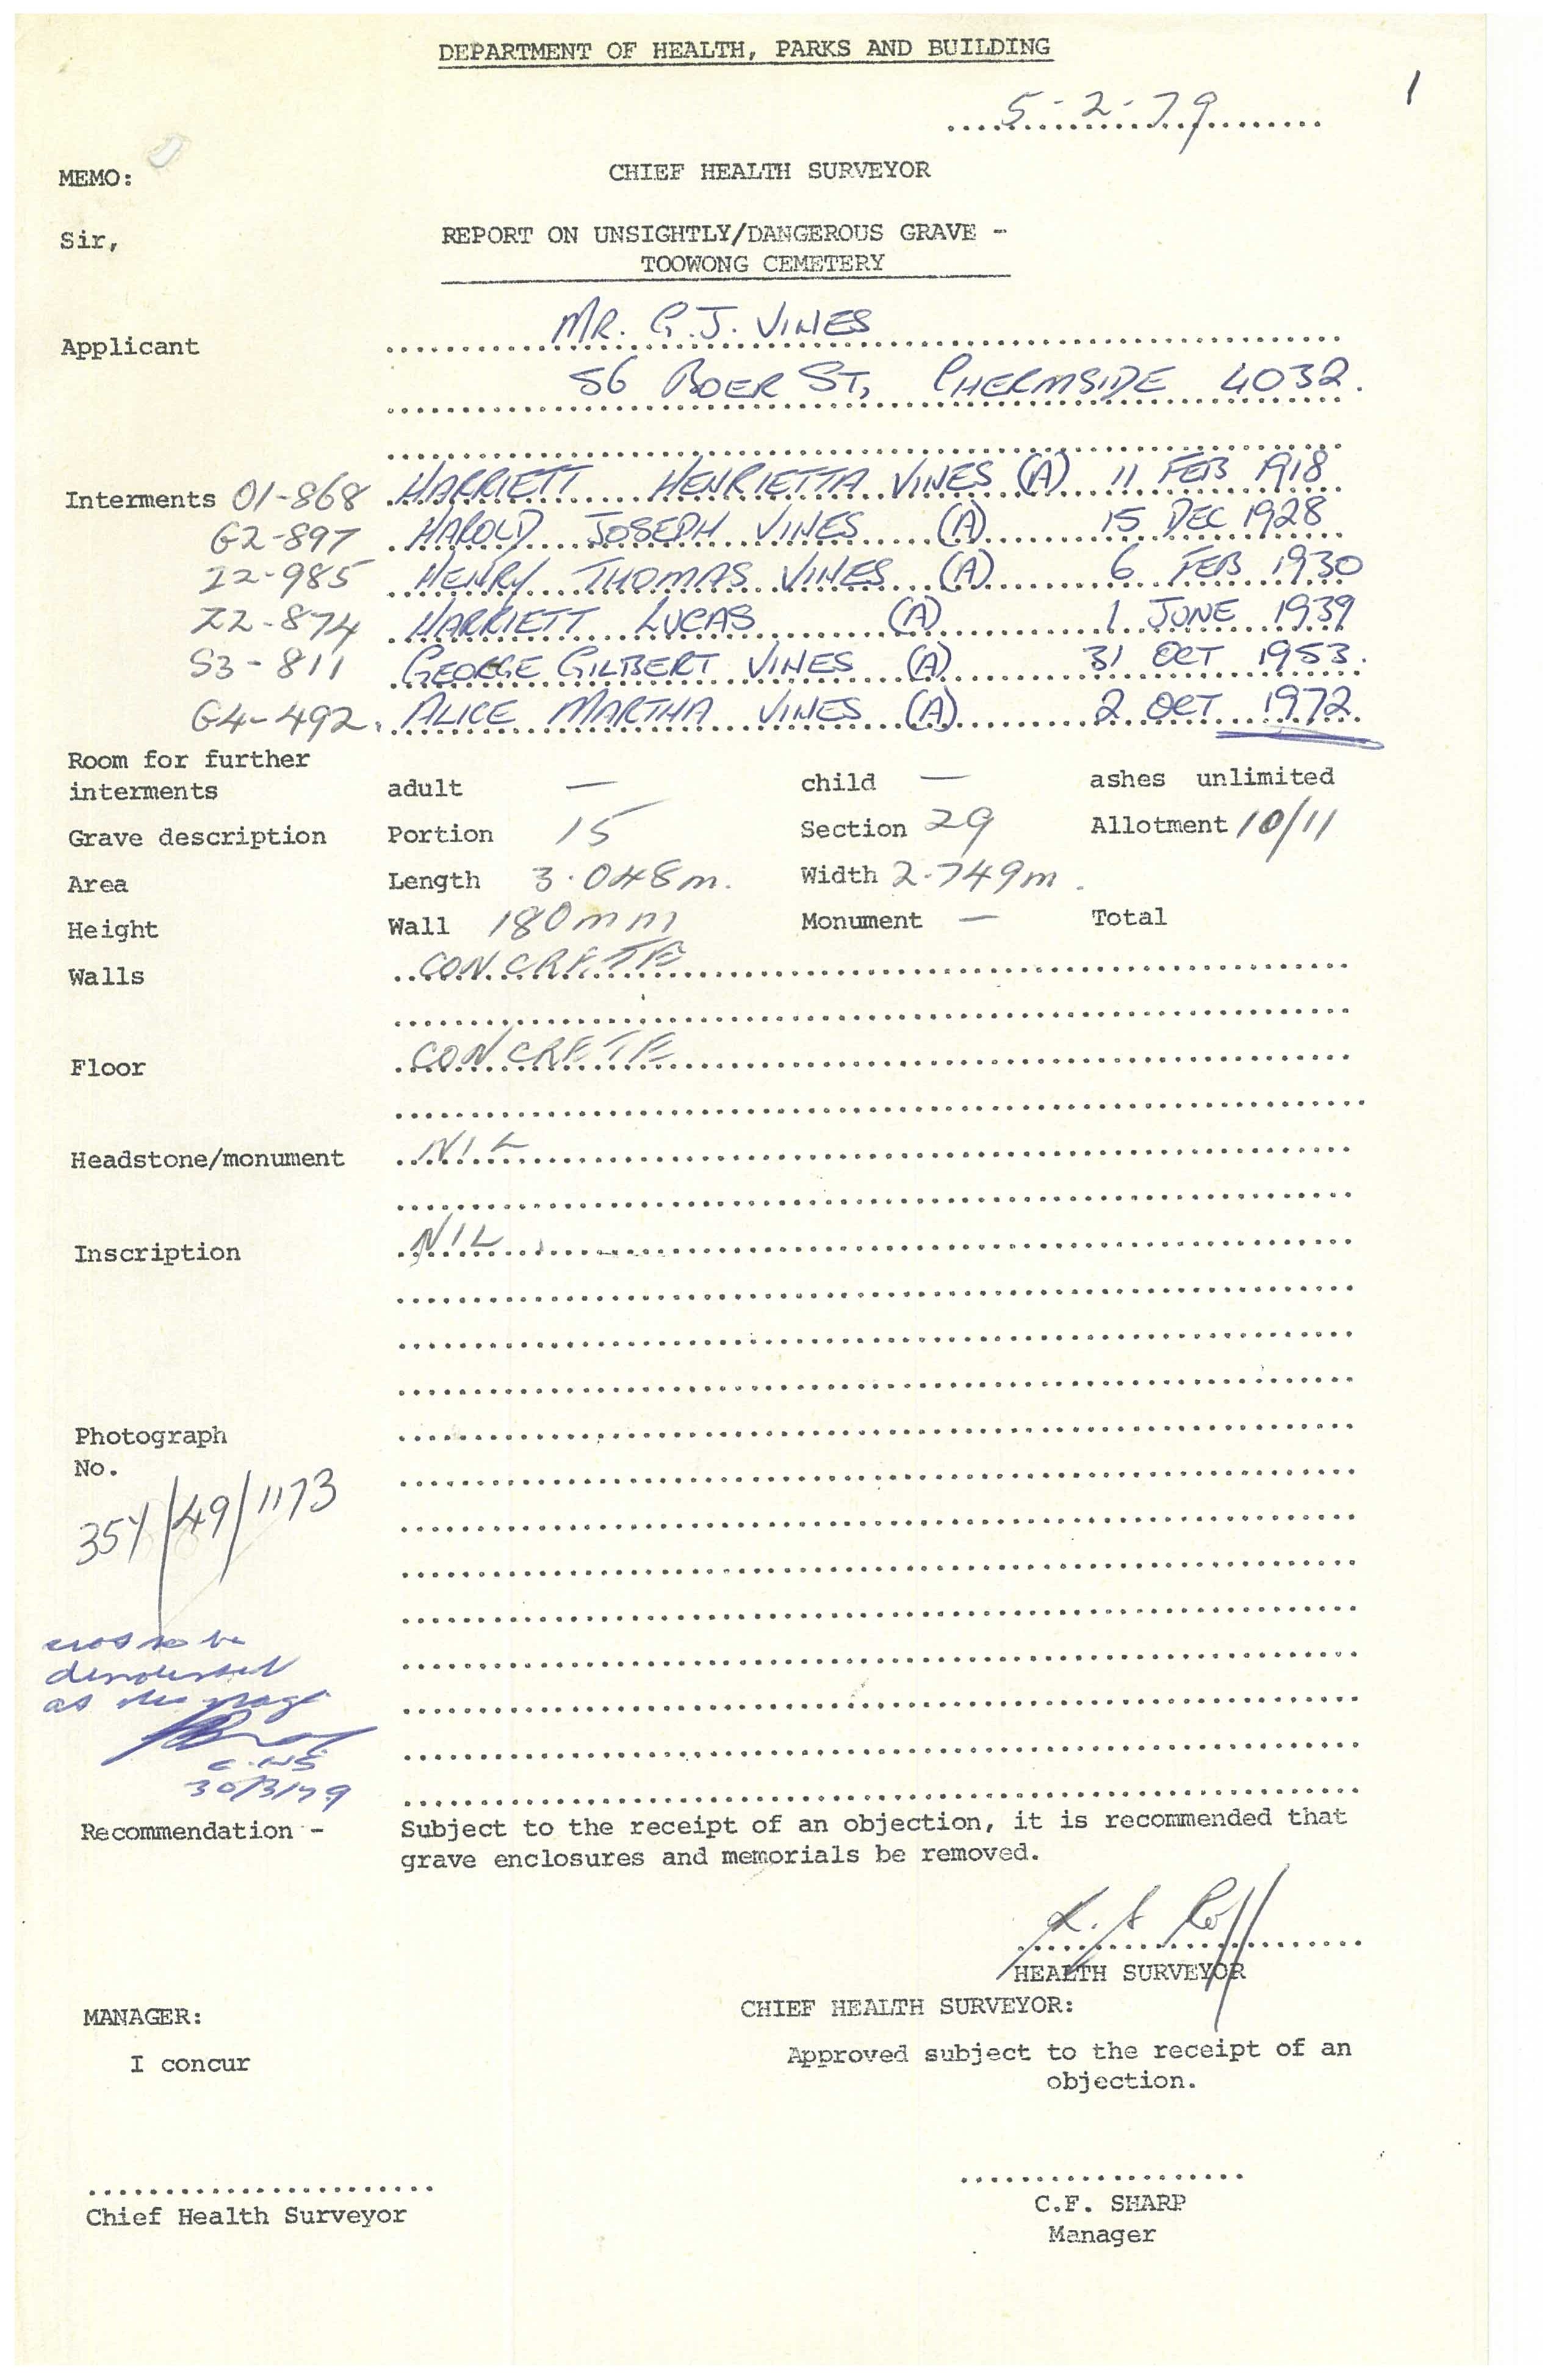 DEPARTMENT OF HEALTH, PARKS AND BUILDING
1
5-2-79
MEMO: CHIEF HEALTH SURVEYOR
Sir, REPORT ON UNSIGHTLY/DANGEROUS GRAVE -
TOOWONG CEMETERY
Applicant MR. G.J. VINES
56 BOER ST, CHERMSIDE 4032.
Interments 01-868 HARRIETT HENRIETTA VINES (A) 11 FEB 1918
G2-897 HAROLD JOSEPH VINES (A) 15 DEC 1928
I2-985 HENRY THOMAS VINES (A) 6 FEB 1930
Z2-874 HARRIETT LUCAS (A) 1 JUNE 1939
S3-811 GEORGE GILBERT VINES (A) 31 OCT 1953.
G4-492. ALICE MARTHA VINES (A) 2 OCT 1972
Room for further
interments adult — child — ashes unlimited
Grave description Portion 15 Section 29 Allotment 10/11
Area Length 3.048m. Width 2.749m.
Height Wall 180mm Monument — Total
Walls CONCRETE
Floor CONCRETE
Headstone/monument NIL
Inscription NIL
Photograph
No.
/49/1173
to be
as
30/3/79
Recommendation - Subject to the receipt of an objection, it is recommended that
grave enclosures and memorials be removed.
HEALTH SURVEYOR
MANAGER: CHIEF HEALTH SURVEYOR:
I concur Approved subject to the receipt of an
objection.
Chief Health Surveyor C.F. SHARP
Manager